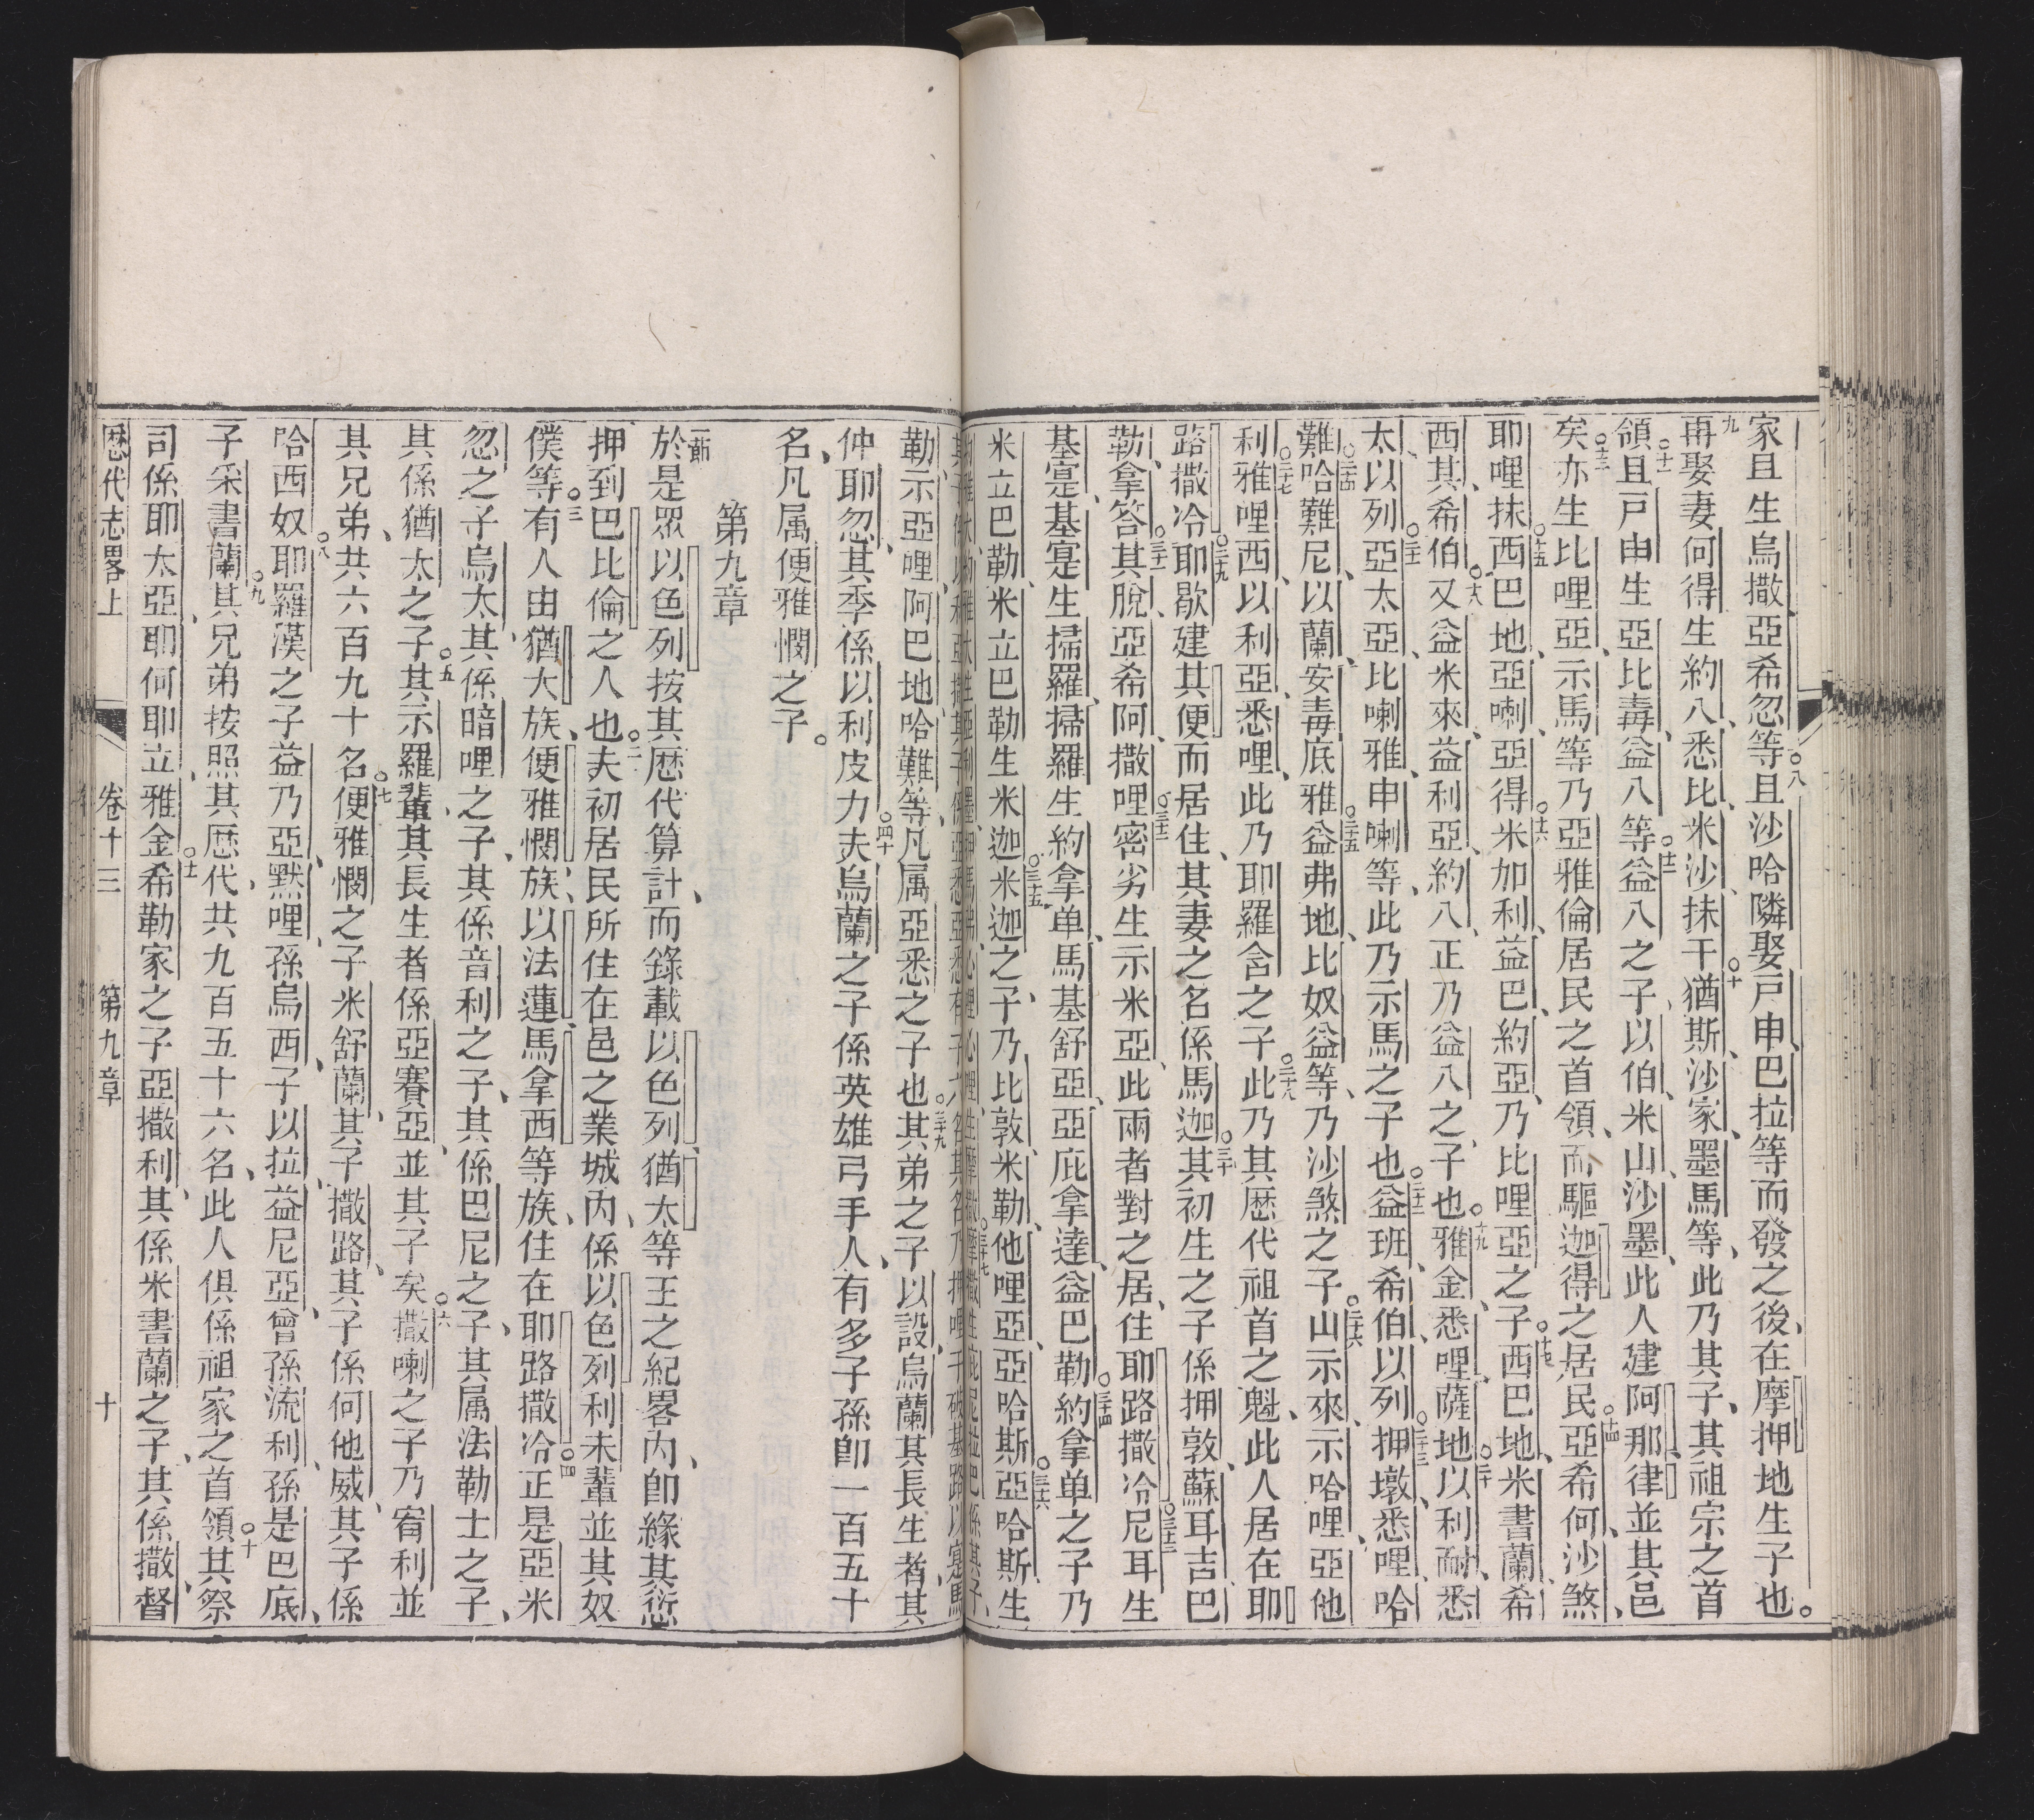 家且生烏撒亞希忽等且沙哈隣娶戸申巴拉等而發之後在摩押地生子也。
再娶妻何得生約八悉比米沙抹干猶斯沙家墨馬等此乃其子其祖宗之首
領且戸由生亞比毒益八等益八之子以伯米山沙墨此人建阿那律並其邑
矣亦生比哩亞示馬等乃亞雅倫居民之首領而驅迦得之居民亞希何沙煞
耶哩抹西巴地亞喇亞得米加利益巴約亞乃比哩亞之子西巴地米書蘭希
西其希伯又益米來益利亞約八正乃益八之子也雅金悉哩薩地以利耐悉
太以列亞太亞比喇雅申喇等此乃示馬之子也益班希伯以列押墩悉哩哈
難哈難尼以蘭安毒底雅益弗地比奴益等乃沙煞之子山示來示哈哩亞他
利雅哩西以利亞悉哩此乃耶羅含之子此乃其厯代祖首之魁此人居在耶
路撒冷耶歇建其便而居住其妻之名係馬迦其初生之子係押敦蘇耳吉巴
勒拿答其脫亞希阿撒哩密劣生示米亞此兩者對之居住耶路撒冷尼耳生
基寔基寔生掃羅掃羅生約拿单馬基舒亞亞庇拿達益巴勒約拿单之子乃
米立巴勒米立巴勒生米迦米迦之子乃比敦米勒他哩亞亞哈斯亞哈斯生
勒示亞哩阿巴地哈難等凡属亞悉之子也其弟之子以設烏蘭其長生者其
仲耶忽其季係以利皮力夫烏蘭之子係英雄弓手人有多子孫卽一百五十
名凡属便雅憫之子。
第九章
一節於是眾以色列按其厯代算計而錄載以色列猶太等王之紀畧內卽緣其愆
押到巴比倫之人也二夫初居民所住在邑之業城內係以色列利未輩並其奴
僕等三有人由猶大族便雅憫族以法蓮馬拿西等族住在耶路撒冷四正是亞米
忽之子烏太其係暗哩之子其係音利之子其係巴尼之子其属法勒士之子
其係猶太之子五其示羅輩其長生者係亞賽亞並其子矣六撒喇之子乃宥利並
其兄弟共六百九十名七便雅憫之子米舒蘭其子撒路其子係何他威其子係
哈西奴八耶羅漢之子益乃亞默哩孫烏西子以拉益尼亞曾孫流利孫是巴底
子采書蘭九其兄弟按照其厯代共九百五十六名此人俱係祖家之首領十其祭
司係耶太亞耶何耶立雅金十一希勒家之子亞撒利其係米書蘭之子其係撒督
厯代志畧上 卷十三 第九章 十